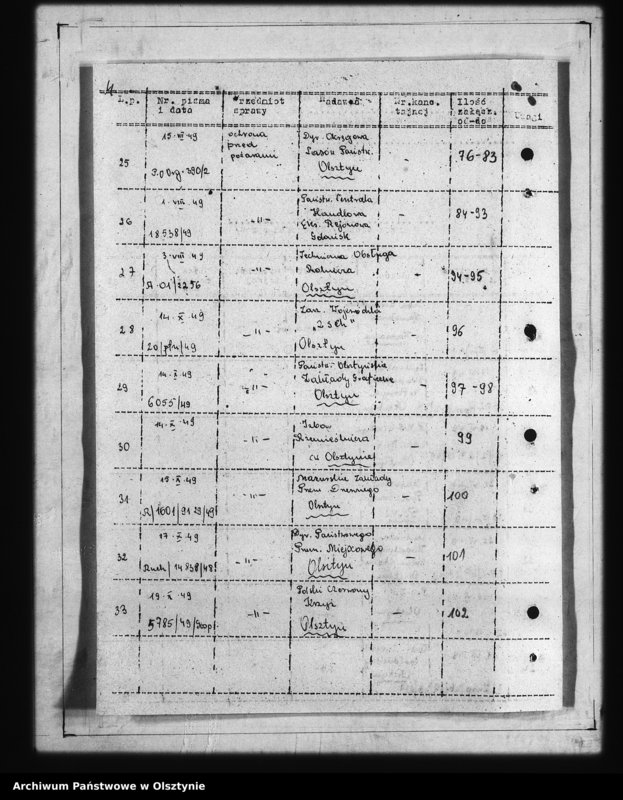 4
L.p. Nr. pisma i data Przedmiot sprawy Nadawca Nr.kanc. tajnej Ilość załącz. od-do Uwagi
25 15.VII.49 ochrona przed pożarami Dyr. Okręgowa Lasów Państw. Olsztyn 76-83
26 1.VIII.49 -"- Państw. Centrala Handlowa Eks. Rejonowa Gdańsk - 84-93
18538/49
27 3.VIII.49 -"- Techniczna Obsługa Rolnictwa Olsztyn - 94-95
A.01/2256
28 14.X.49 -"- Zarz. Wojewódzki "ZSCh" Olsztyn - 96
20/pfn/49
29 14.X.49 -"- Państw. Olsztyńskie Zakłady Graficzne Olsztyn - 97-98
6055/49
30 14.X.49 -"- Izba Rzemieślnicza w Olsztynie - 99
31 15.X.49 -"- Mazurskie Zakłady Przem. Drzewnego Olsztyn - 100
A/1601/9129/49
32 17.X.49 -"- Dyr. Państwowego Przem. Miejscowego Olsztyn - 101
33 19.X.49 -"- Polski Czerwony Krzyż Olsztyn - 102
5785/49/
Archiwum Państwowe w Olsztynie